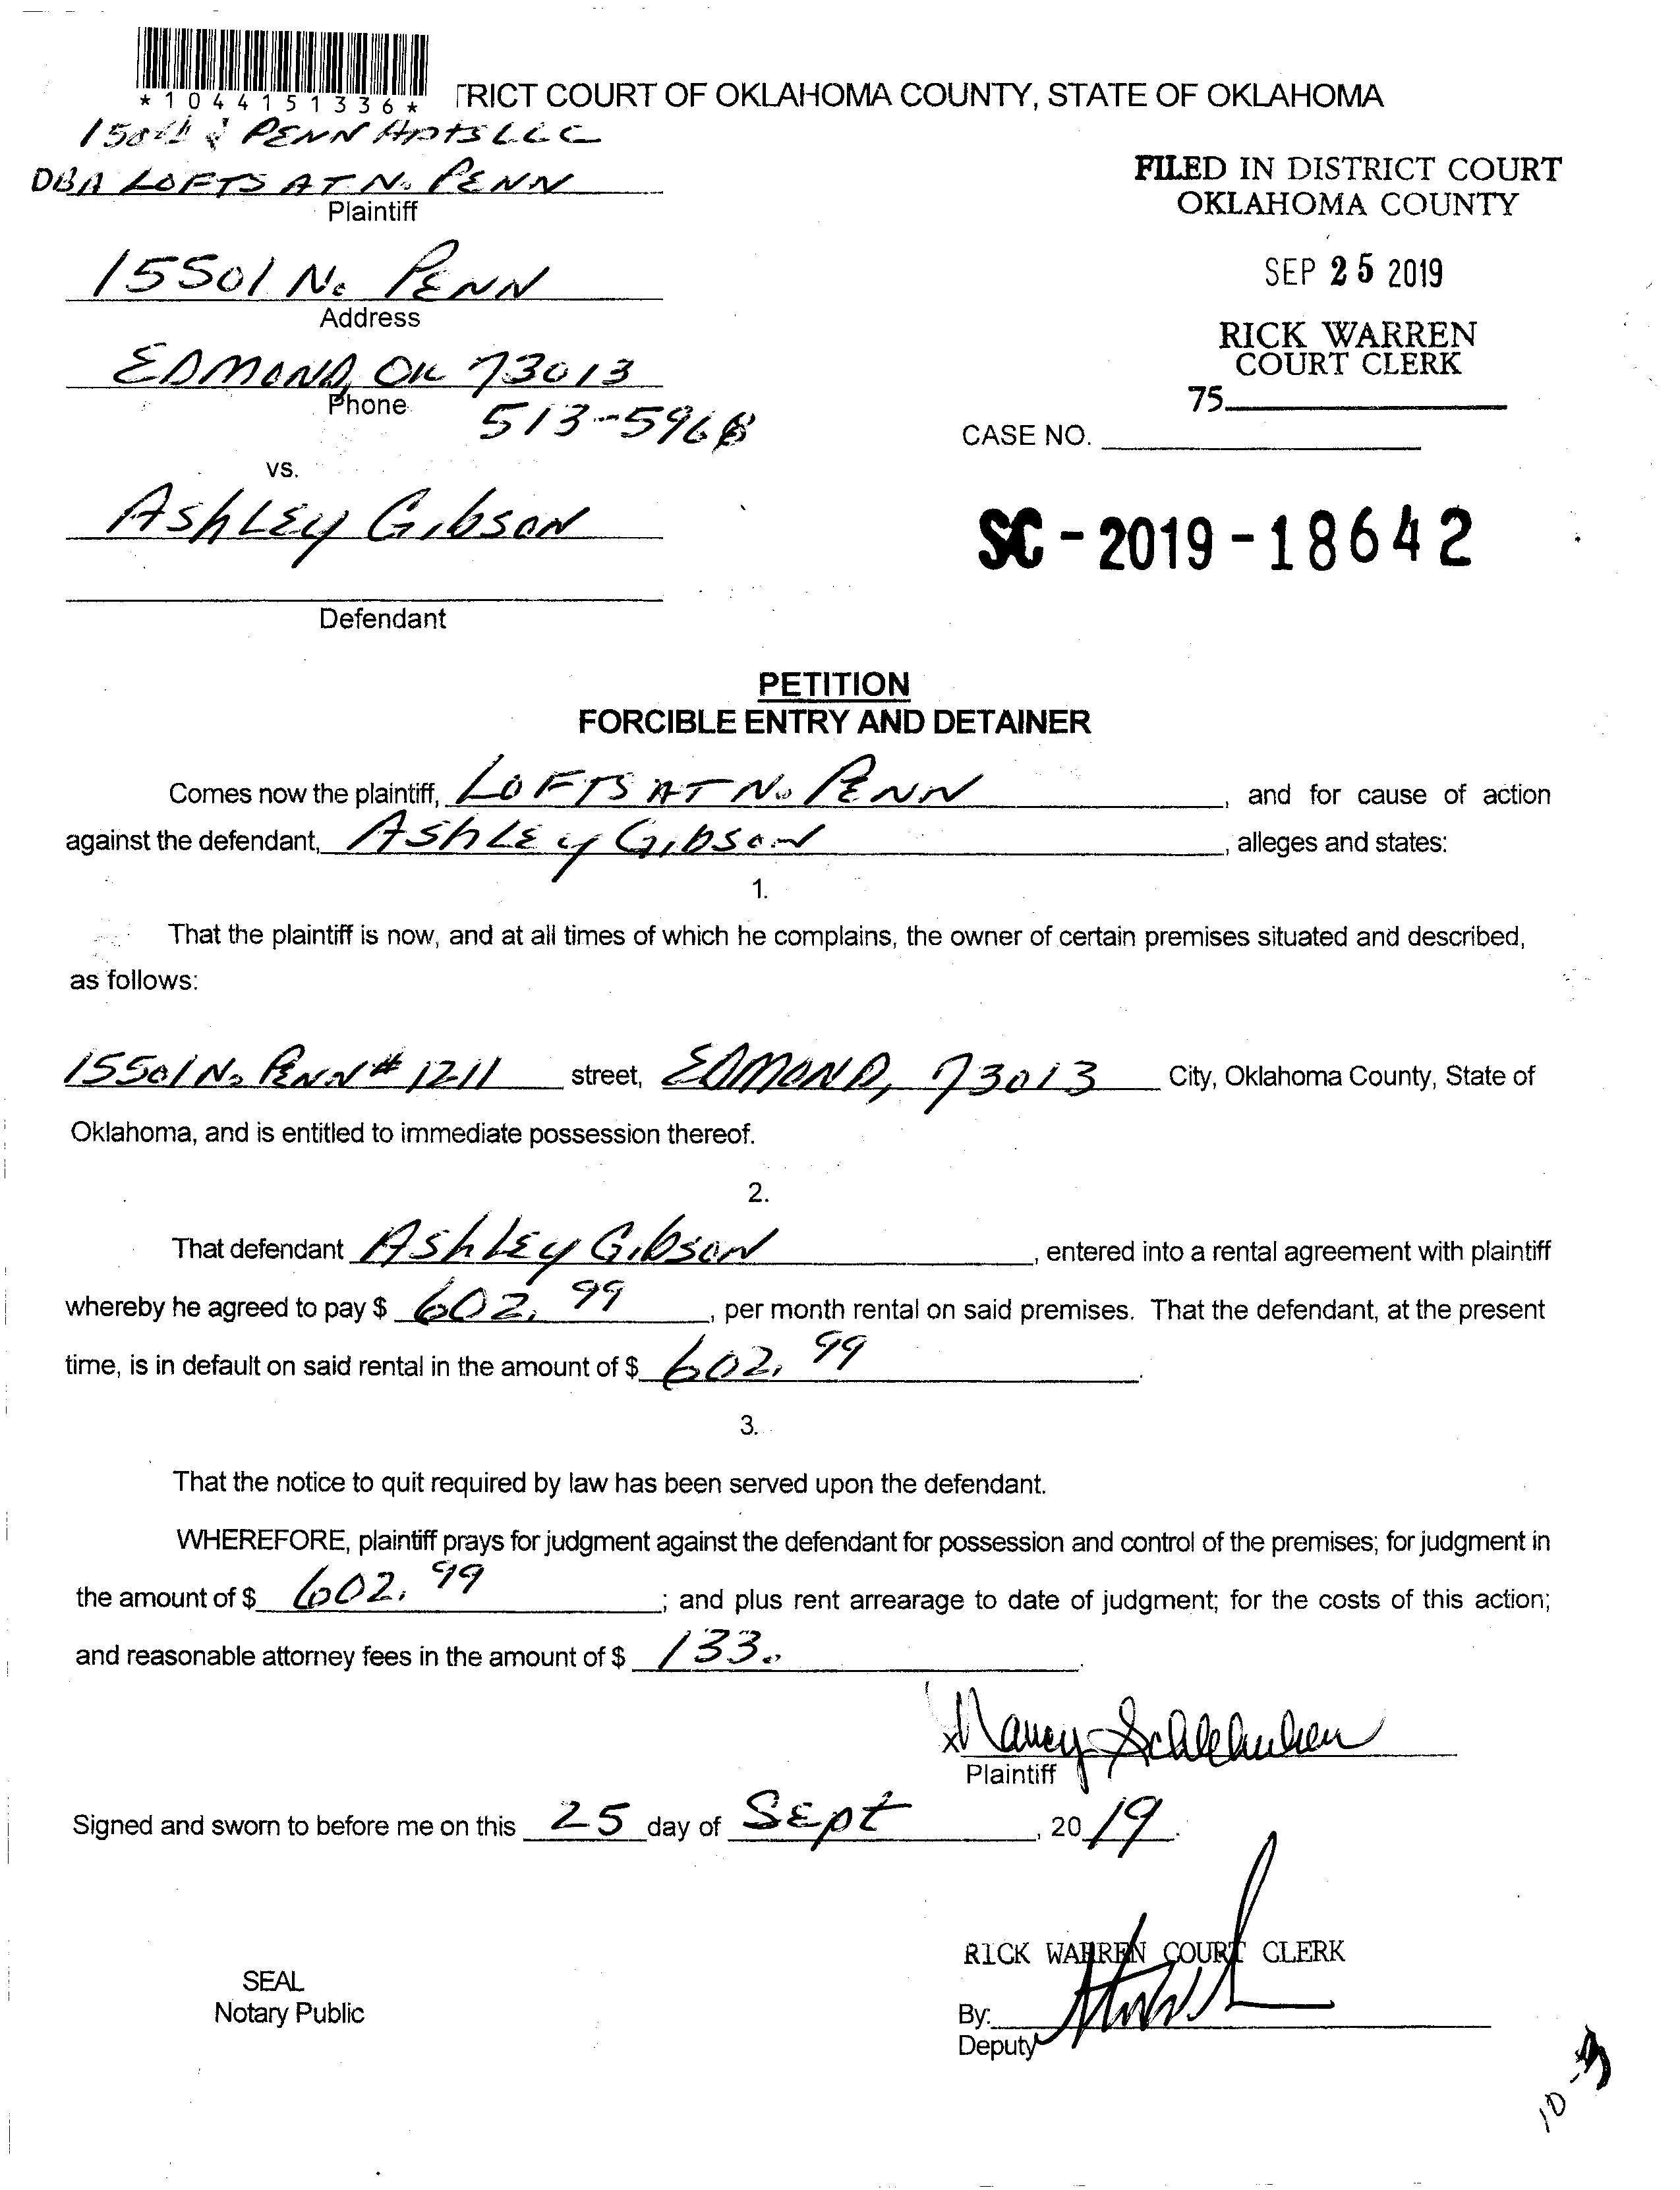 *1044151336*
TRICT COURT OF OKLAHOMA COUNTY, STATE OF OKLAHOMA
150th & PENN Apts LLC
DBA LOFTS AT No PENN
Plaintiff
FILED IN DISTRICT COURT
OKLAHOMA COUNTY
15501 No PENN
Address
SEP 25 2019
EDMOND, OK 73013
Phone
513-596
RICK WARREN
COURT CLERK
75
CASE NO.
vs.
Ashley Gibson
SC-2019-18642
Defendant
PETITION
FORCIBLE ENTRY AND DETAINER
Comes now the plaintiff, LOFTS AT No. PENN, and for cause of action
against the defendant, Ashley Gibson, alleges and states:
1.
That the plaintiff is now, and at all times of which he complains, the owner of certain premises situated and described,
as follows:
15501 No PENN # 1211 street, EDMOND, 73013 City, Oklahoma County, State of
Oklahoma, and is entitled to immediate possession thereof.
2.
That defendant Ashley Gibson, entered into a rental agreement with plaintiff
whereby he agreed to pay $ 602.99, per month rental on said premises. That the defendant, at the present
time, is in default on said rental in the amount of $ 602.99.
3.
That the notice to quit required by law has been served upon the defendant.
WHEREFORE, plaintiff prays for judgment against the defendant for possession and control of the premises; for judgment in
the amount of $ 602.99; and plus rent arrearage to date of judgment; for the costs of this action;
and reasonable attorney fees in the amount of $ 133..
x Nancy
Plaintiff
Signed and sworn to before me on this 25 day of Sept, 2019.
RICK WARREN COURT CLERK
SEAL
Notary Public
By:
Deputy
10-